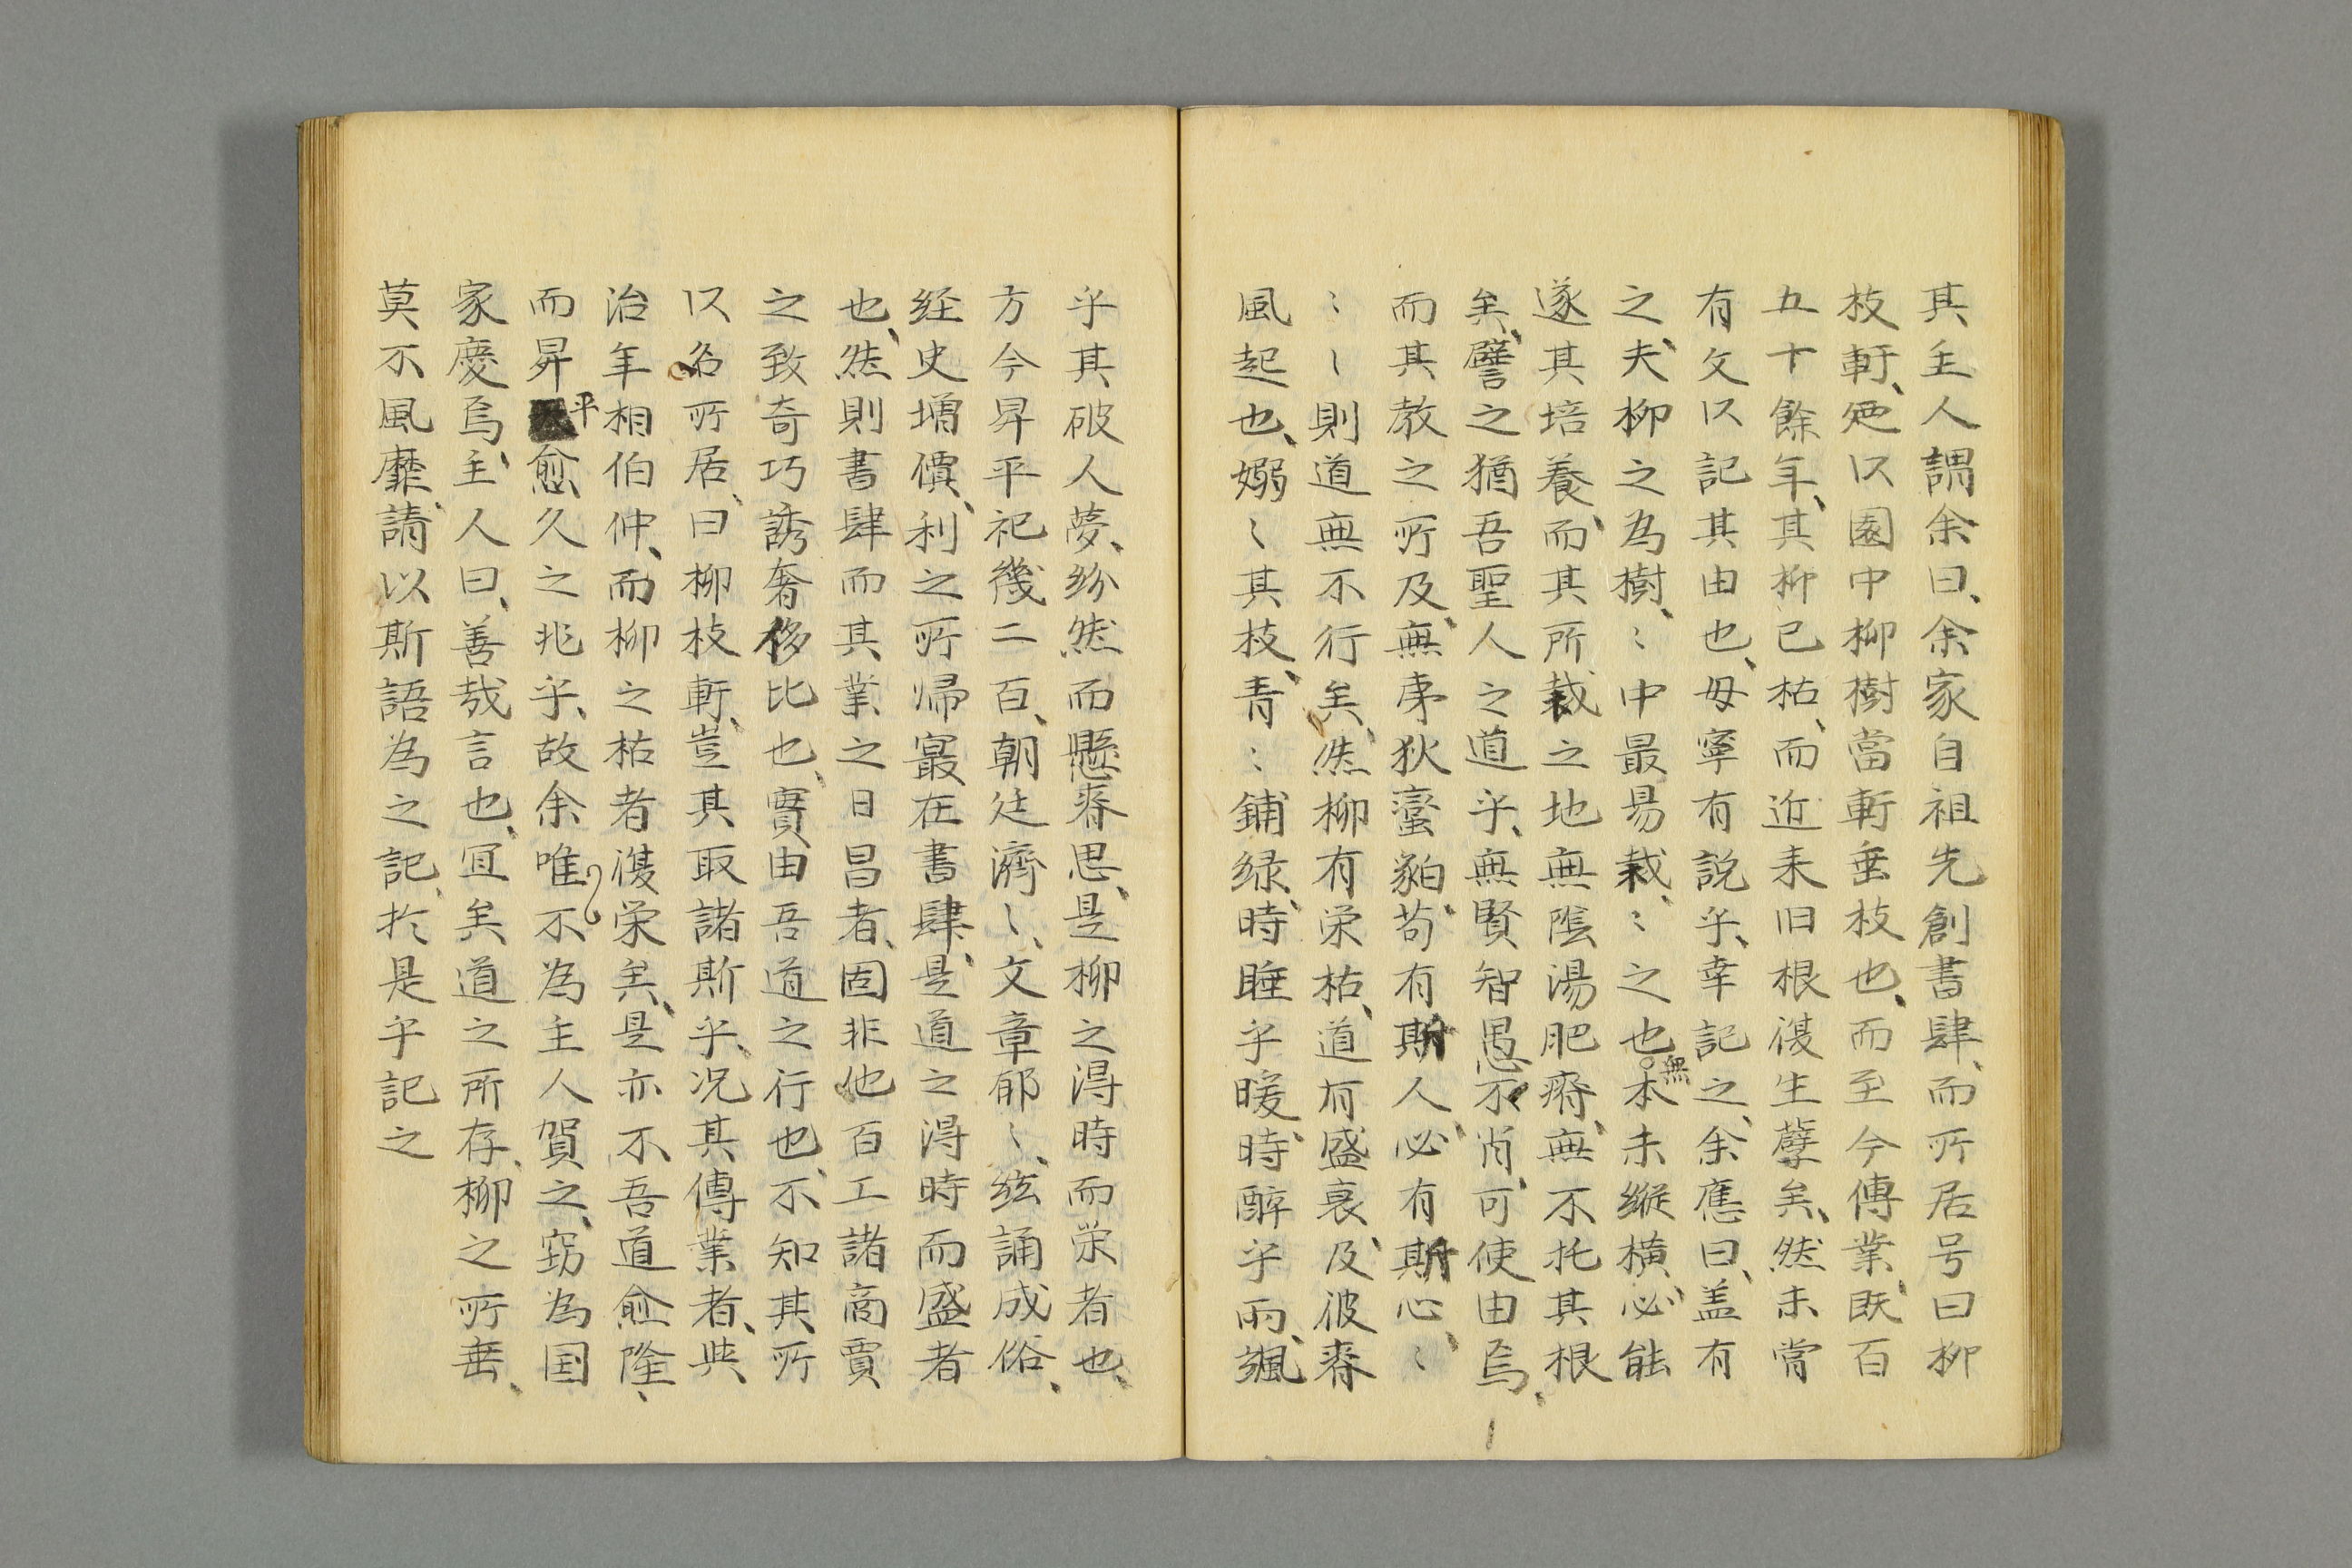 其主人謂余曰、余家自祖先創書肆、而所居号曰柳
枝軒、夗以園中柳樹當軒垂枝也、而至今傳業、既百
五十餘年、其柳已枯、而近来旧根復生孽矣、然未嘗
有文以記其由也、毋寧有説乎、幸記之、余應曰、盖有
之、夫柳之為樹、〻中最易栽、〻之也無本末縦横、必能
遂其培養、而其所栽之地無隂湯肥瘠、無不托其根
矣、譬之猶吾聖人之道乎、無賢智愚不肖、可使由焉、
而其教之所及、無東狄蠻貊、苟有斯人、必有斯心、〻
〻〻則道無不行矣、然柳有栄枯、道有盛衰、及彼春
風起也、嫋〻其枝、青〻鋪緑、時睡乎暖、時醉乎雨、颯
乎其破人夢、紛然而懸春思、是柳之得時而栄者也、
方今昇平祀幾二百、朝廷濟〻、文章郁〻、絃誦成俗、
経史増價、利之所帰寂在書肆、是道之得時而盛者
也、然則書肆而其業之日昌者、固非他百工諸商賈
之致奇巧誘奢侈比也、實由吾道之行也、不知其所
以名所居、曰柳枝軒、豈其取諸斯乎、况其傳業者、與
治年相伯仲、而柳之枯者復栄矣、是亦不吾道愈隆、
而昇平愈久之兆乎、故余唯不為主人賀之、窃為国
家慶焉、主人曰、善哉言也、冝矣道之所存、柳之所垂、
莫不風靡、請以斯語為之記、於是乎記之